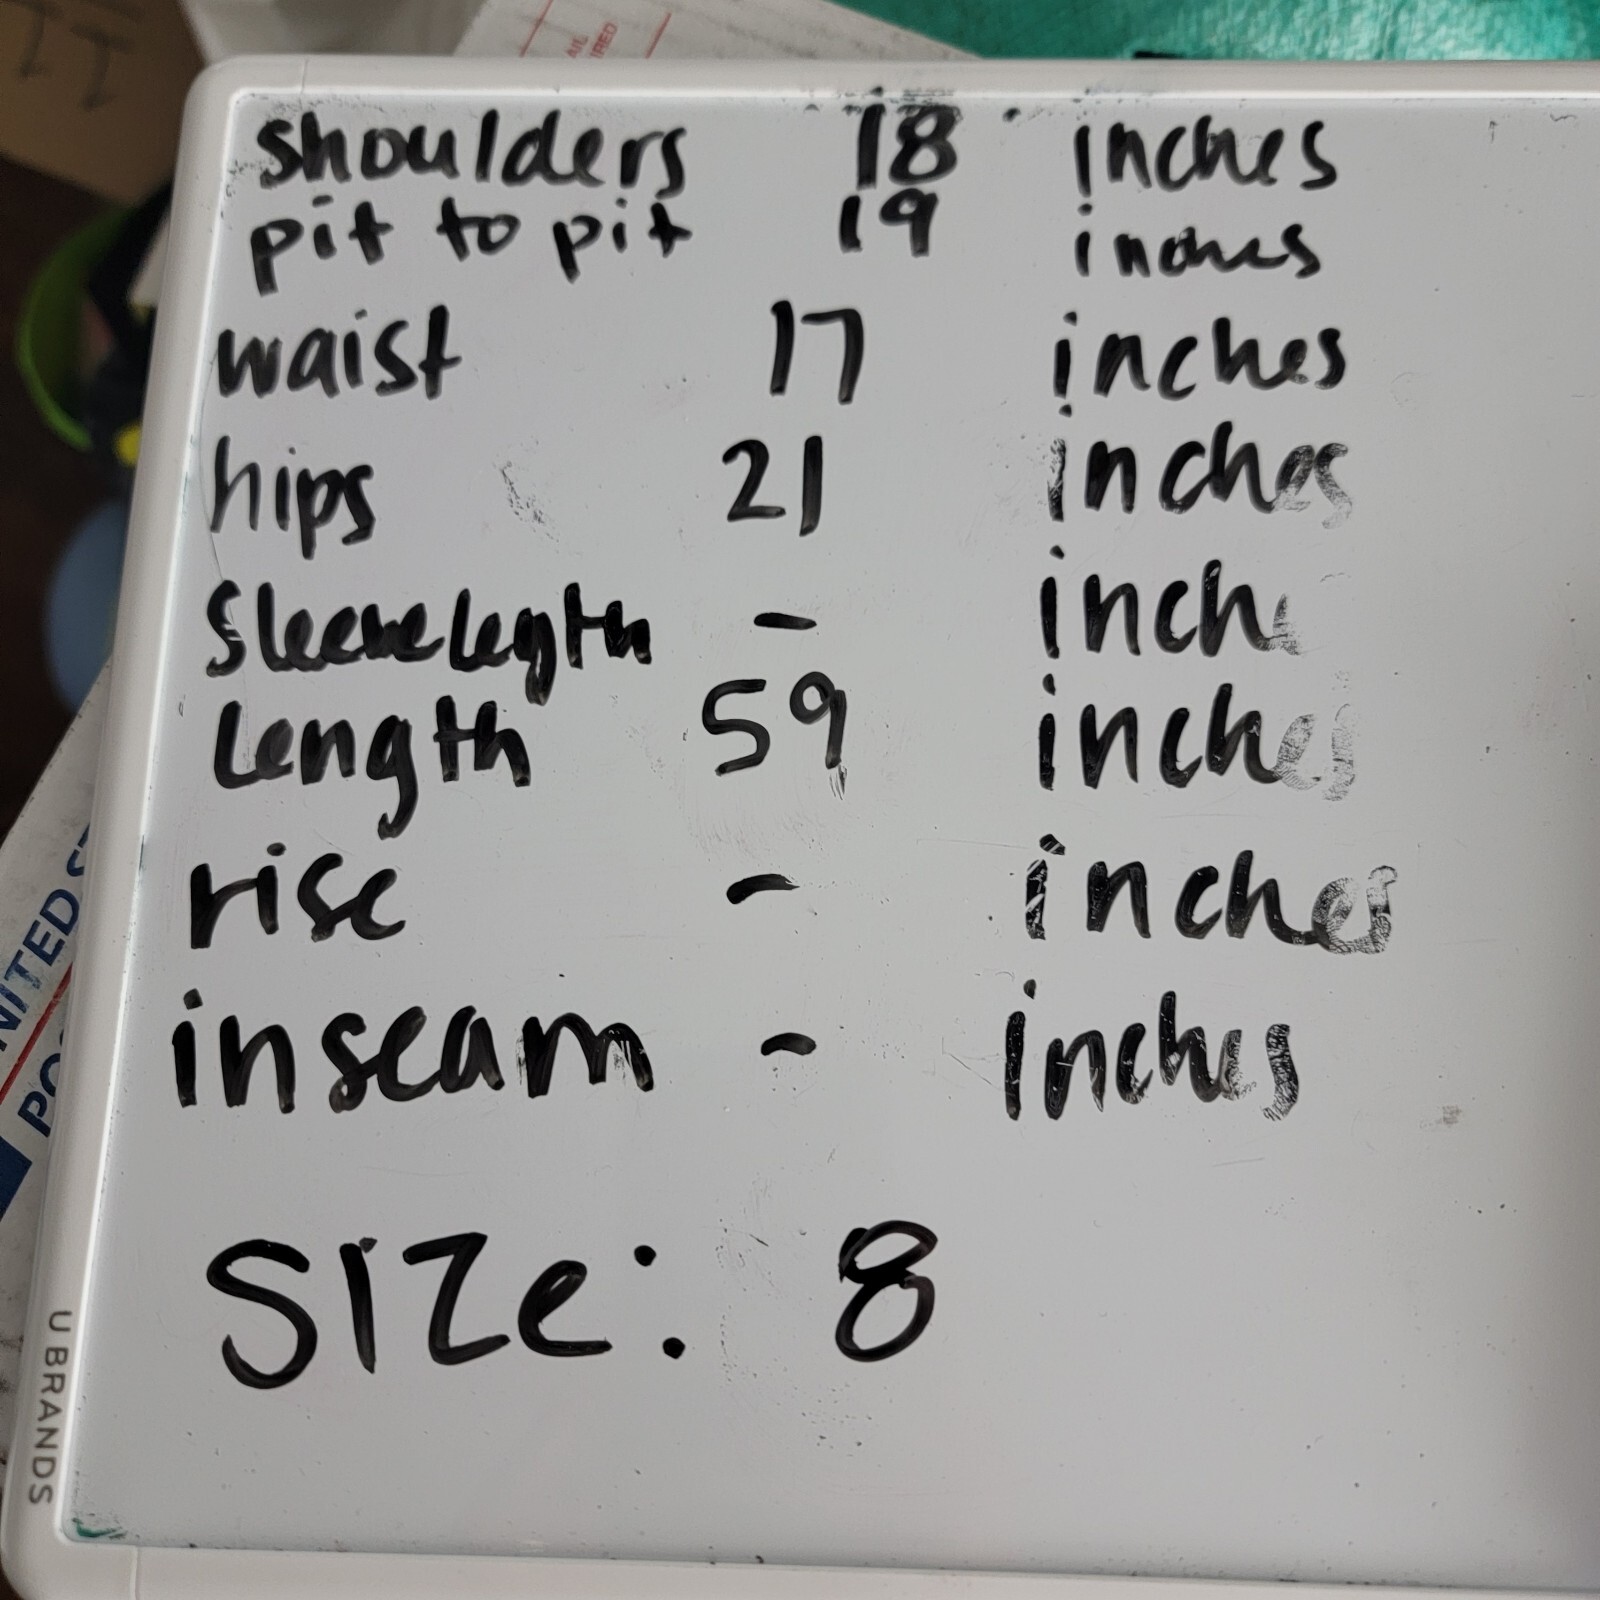 shoulders 18 inches
pit to pit 19 inches
waist 17 inches
hips 21 inches
Sleevelegth - inch
Length 59 inches
rise - inches
inseam - inches
SIZe: 8
U BRANDS